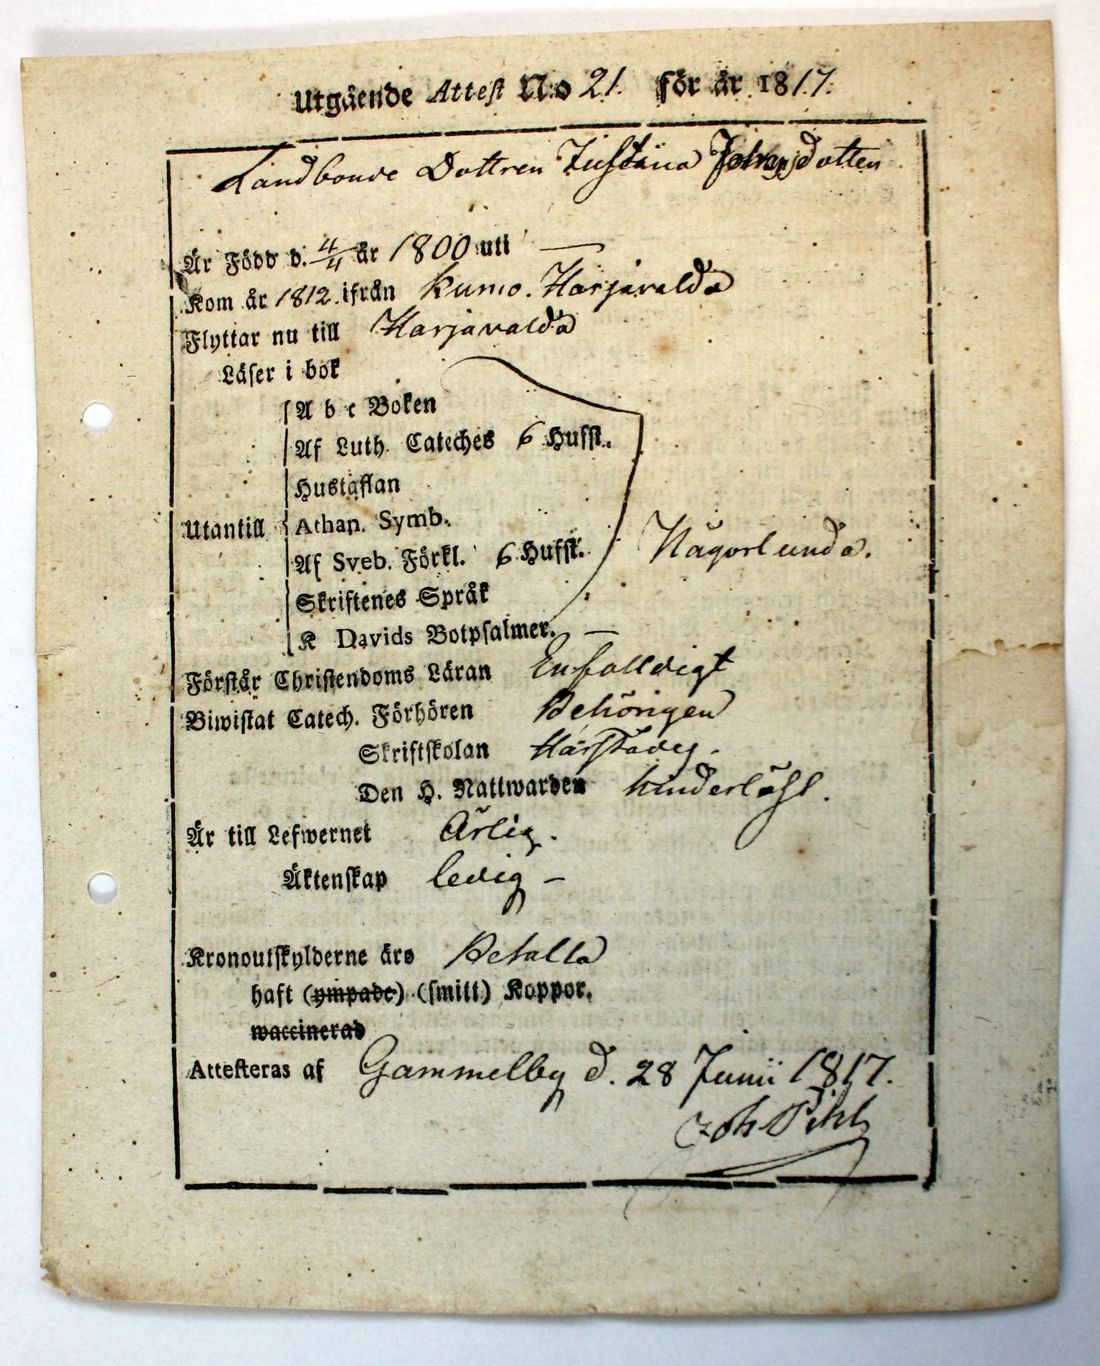 Utgående Attest N:o 21. för år 1817.
Landbonde Dottren Justina Johansdotter
Är Född d. 4/4 år 1800 uti —
Kom år 1812. ifrån Kumo. Harjavalda
Flyttar nu till Harjavalda
Läser i bok
A b c Boken
Af Luth. Cateches 6 Hufst.
Hustaflan
Utantill Athan. Symb.
Af Sveb. Förkl. 6 Hufst. Någorlunda.
Skriftenes Språk
K Davids Botpsalmer. —
Förstår Christendoms Läran Enfalldigt
Biwistat Catech. Förhören Behörigen
Skriftskolan
Den H. Nattwarden hinderlöst.
Är till Lefwernet Ärlig.
Äktenskap ledig —
Kronoutskylderne äro Betalta
haft (ympade) (smitt) Koppor.
waccinerad
Attesteras af Gammelby d. 28 Junii 1817.
Joh Pihl